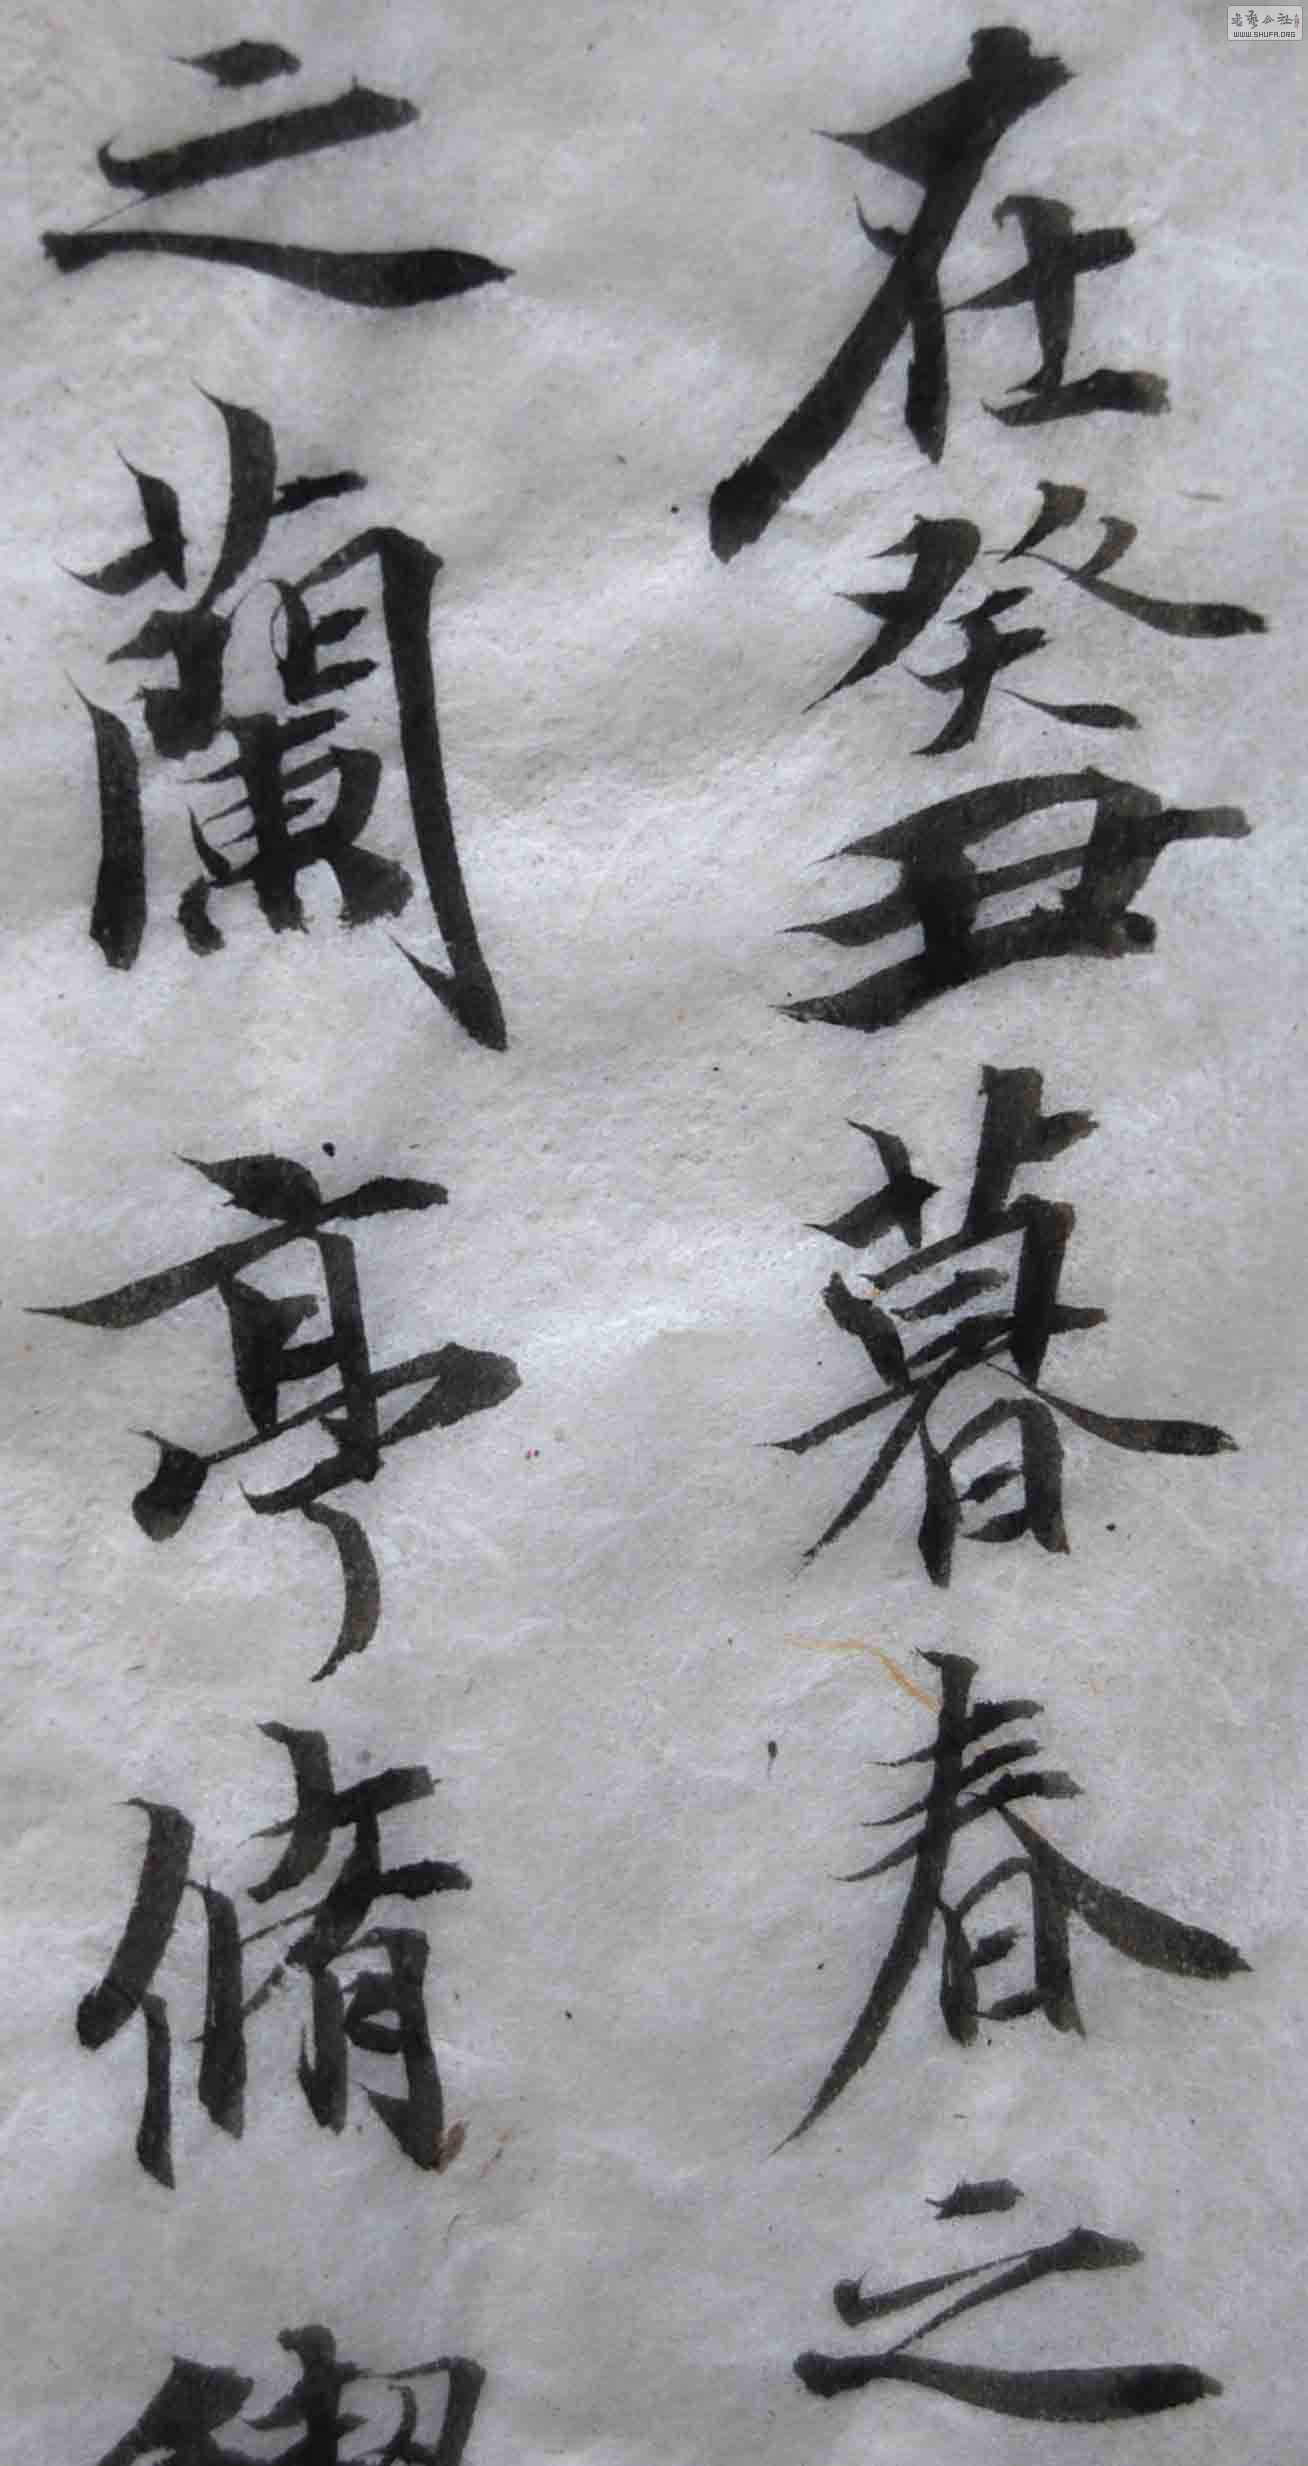 在癸丑暮春之
之蘭亭脩禊
書藝公社
WWW.SHUFA.ORG